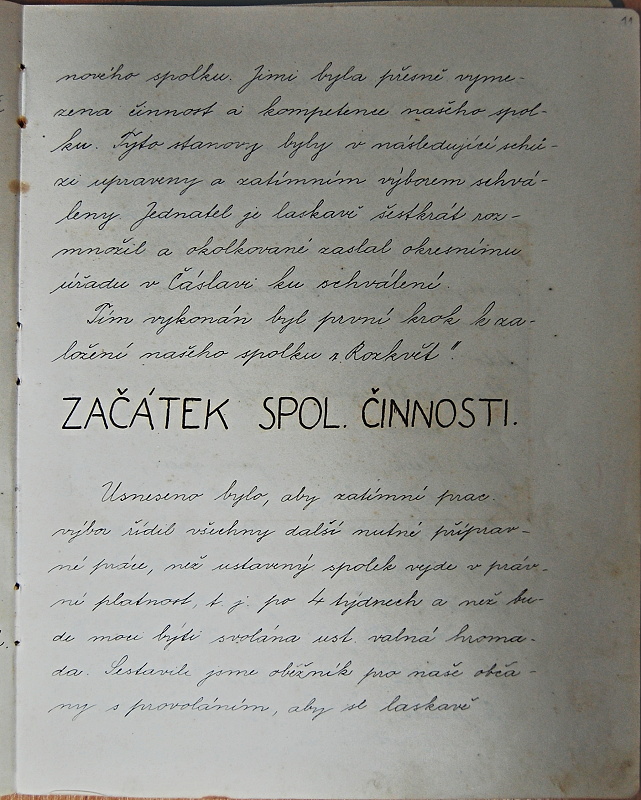 11
nového spolku. Jimi byla přesně vyme-
zena činnost a kompetence našeho spol-
ku. Tyto stanovy byly v následující schů-
zi upraveny a zatímním výborem schvá-
leny. Jednatel je laskavě šestkrát roz-
množil a okolkované zaslal okresnímu
úřadu v Čáslavi ku schválení.
Tím vykonán byl první krok k za-
ložení našeho spolku „Rozkvět".
ZAČÁTEK SPOL. ČINNOSTI.
Usneseno bylo, aby zatímní prac.
výbor řídil všechny další nutné příprav-
né práce, než ustavený spolek vejde v práv-
ní platnost, t. j. po 4 týdnech a než bu-
de moci býti svolána ust. valná hroma-
da. Sestavili jsme oběžník pro naše obča-
ny s provoláním, aby se laskavě